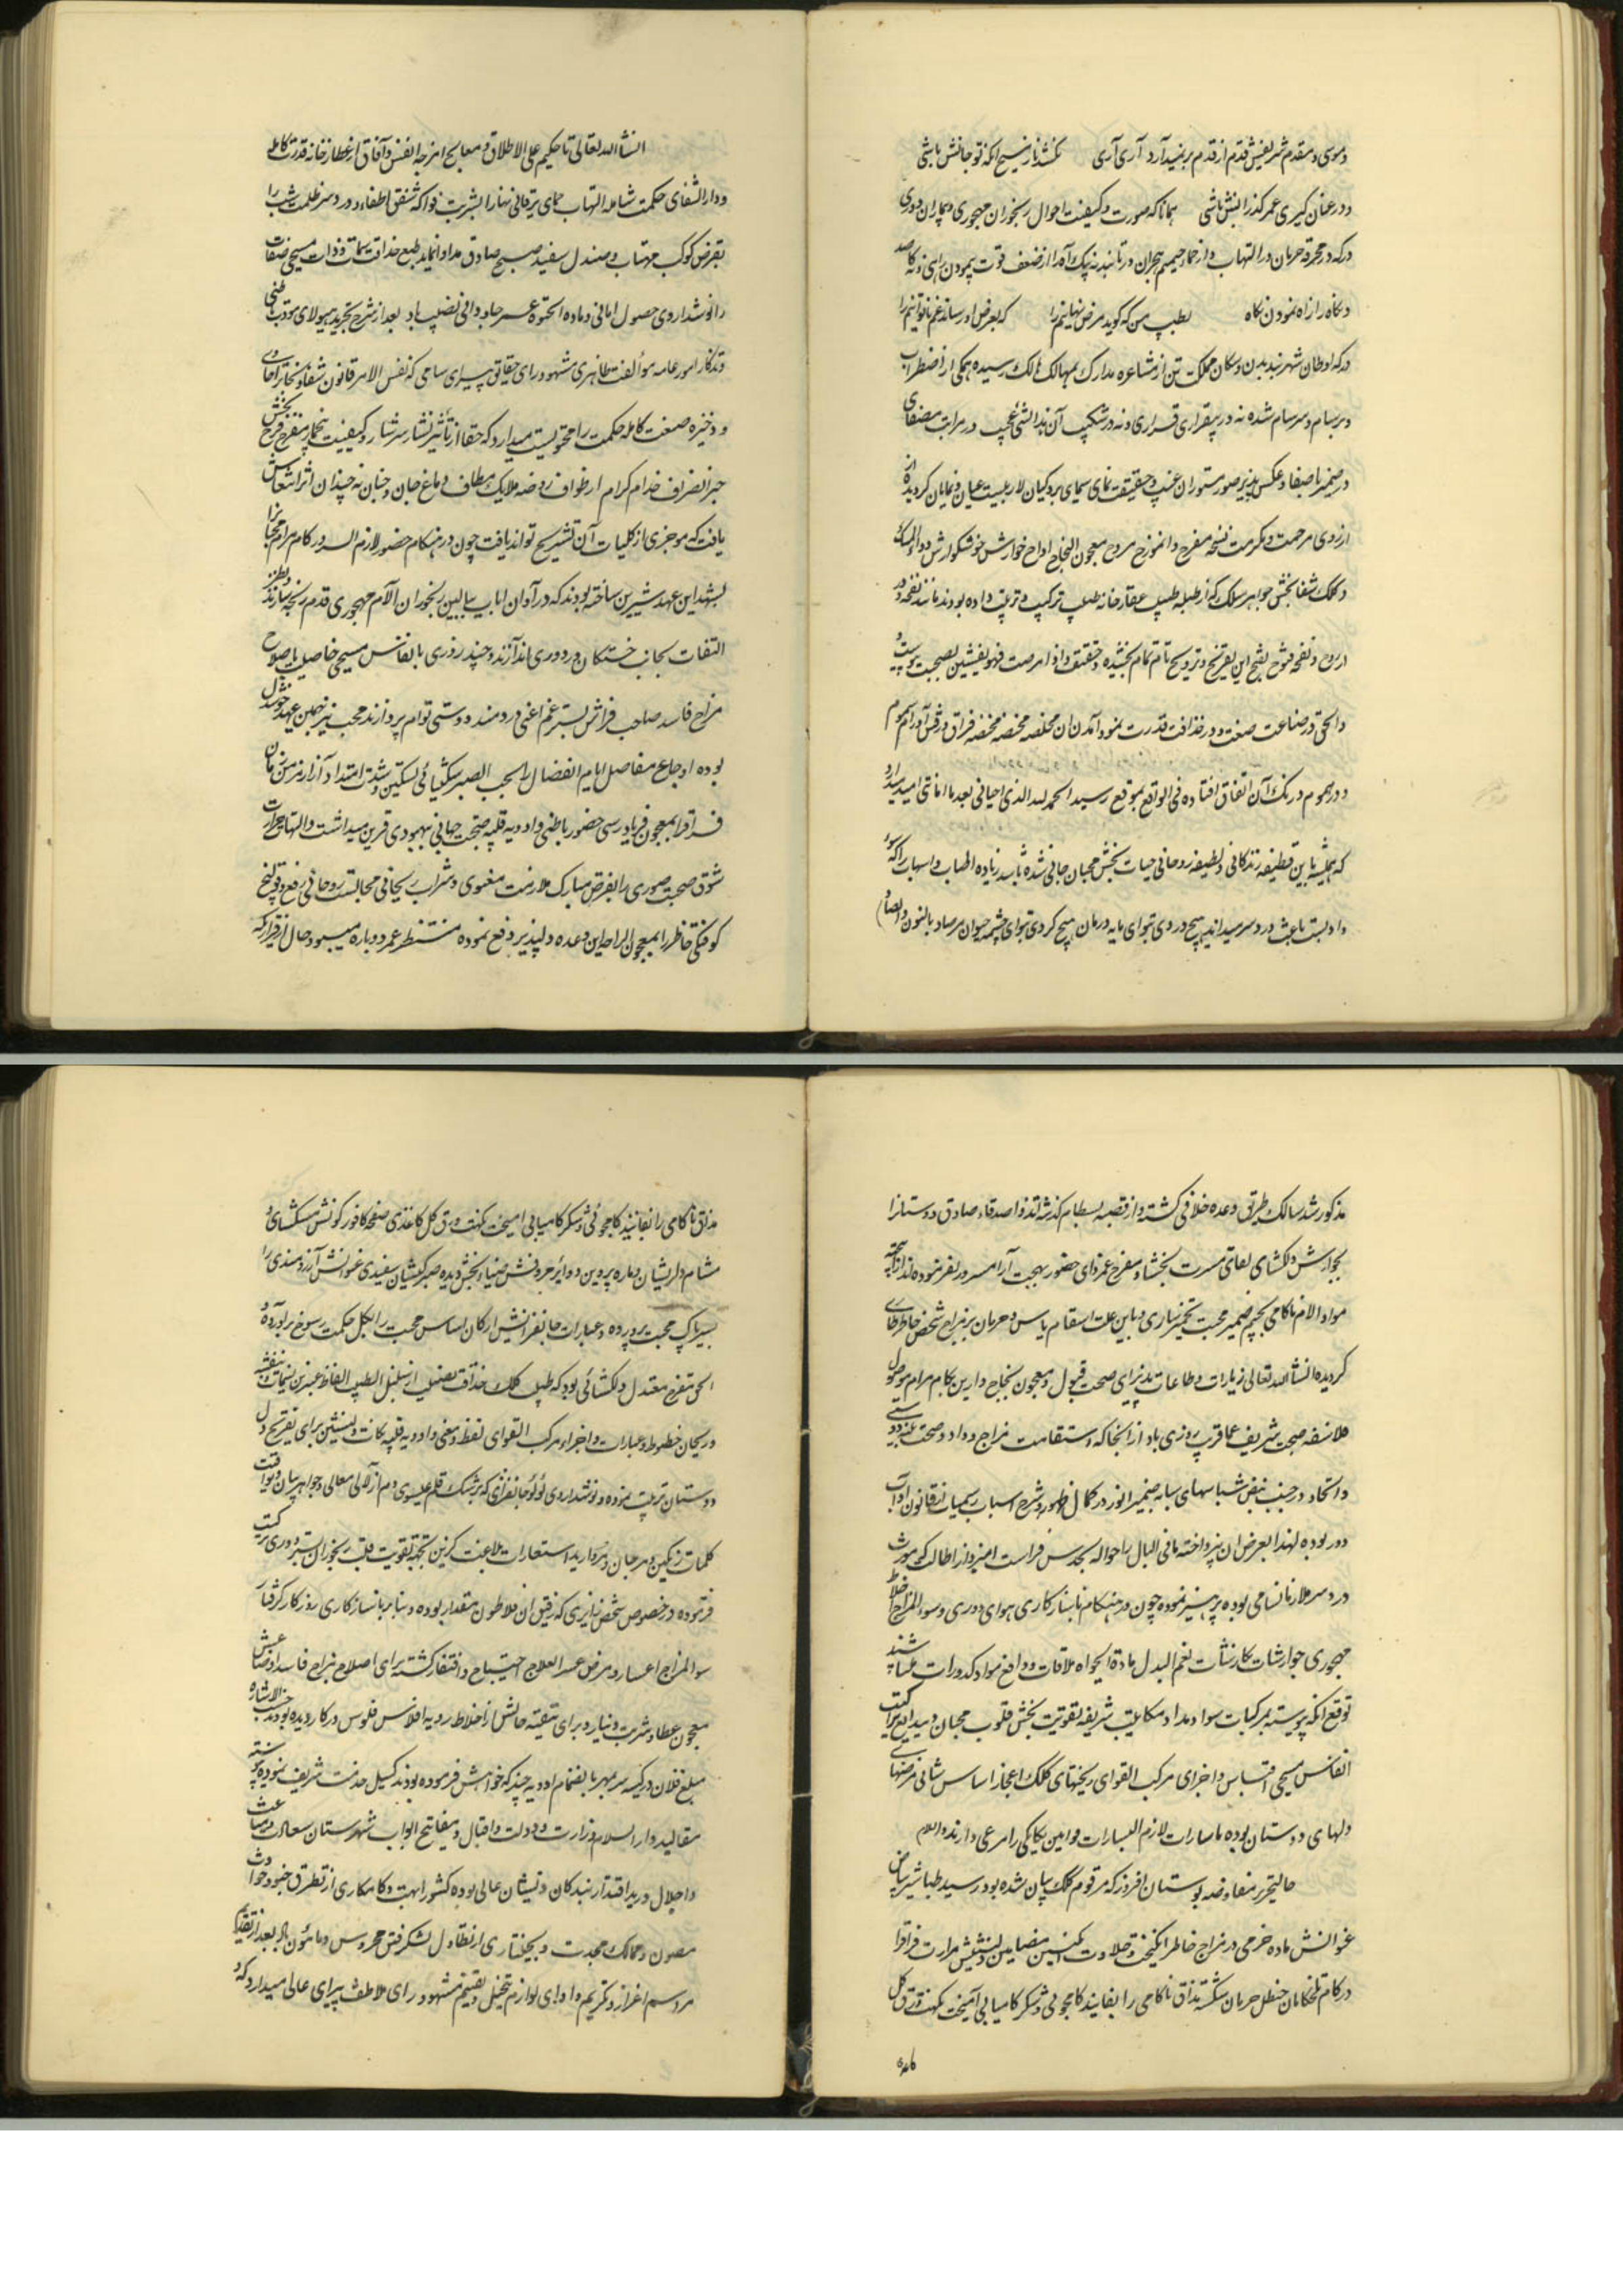 و موسی و مقدم شریفش قدم از قدم بر نمیدارد آری آری نکشد ناز مسیح آنکه تو جانش باشی
و در عنان گیری عمر گذرانش باشی همانا که صورت و کیفیت احوال رنجوران مهجوری و بیماران دوری
در که در محرقه حرمان در التهاب و از حماء حمیم هجران در تابند نه پیک آه را از ضعف قوت پیمودن راهی و نه قاصد
و نگاه را زاه نمودن نگاه بطبیب من که گوید مرض نهانیم را که بعرض او رساند غم ناتوانیم را
در که اوطان شهربند بدن و سکان مملکت تن از مشاعره مدارک بمهالک هالک رسیده همگی از اضطراب
و برسام و سرسام شده نه در بیقراری قراری و نه در شکیب آن هذا لشئ عجیب در مرات مصفای
در ضمیر با صفا و عکس پذیر صور مستوران غیب و حقیقت نمای سیمای پردگیان لاریبست عیان و نمایان گردیده از
از روی مرحمت و مکرمت نسخه مفرح و انموزج مروح معجون النجاح ارواح خوارش خوشگوارش دواء المسک
و کلک شفا بخش جواهر سلک که از طبله طبیب عقارخانه طبیب ترکیب و ترتیب داده بودند مانند نفخه در
ارواح و نفحه فتوح بفتح این تفریح و ترویح تام تمام بخشیده حقیقت و اذا مرضت فهو یشفین بصحت پیوست و
والحق در صناعت صنعت و در حذاقت قدرت نمود آمدن ان مخلصه مخمصه فراق و رقی آورام سموم
و در هموم در رنک آن اتفاق افتاده فی الواقع بموقع رسید الحمد لله الذی احیانی بعد ما اماتنی امید میدارد
که همیشه باین قطیفه زندگانی و لطیفه روحانی حیات بخش محبان جانی شده باشد زیاده اطناب و اسهاب را که سوء
و ادبست باعث درد سر میداند هیچ دردی تو ای مایه درمان هیچ کردی تو ای چشمه حیوان مرصاد بالنون و الصاد
انشاء الله تعالی تا حکیم علی الاطلاق و معالج امزجه انفس و آفاق از عطارخانه قدرت کامله
و دار الشفای حکمت شامله التهاب حمای یرقانی نهار را بشربت فواکه شفق اطفاء و درد سر ظلمت شب را
بقرص کوکب مهتاب و صندل سفید صبح صادق مداوا نماید طبع حذاقت سمات و ذات مسیحی صفات
را نوشداروی حصول امانی و ماده الحیوة عمر جاودانی نصیب باد بعد از شرح تجرید هیولای مودت باطنی
و تذکار امور عامه موالفت ظاهری مشهود رای حقایق پیرای سامی که نفس الامر قانون شفا و مختار
و ذخیره صنعت کامله حکمت را محتویست میدارد که حقا از تأثیر نشأ سرشار و کیفیت خمار مفرح فرح بخش
خبر انصراف خدام کرام از طواف روضه ملایک مطاف دماغ جان و جنان نه چندان اثر انتعاش
یافت که موجزی از کلیات آن تشریح تواند یافت چون در هنگام حضور لازم السرور کام مرام محبا نرا
بشهد این عهد شیرین ساخته بودند که در آوان ایاب ببالین رنجوران آلام مهجوری قدم رنجه سازند و بطرز
التفات بجانب خستگان درد دوری اندازند و چند روزی بانفاس مسیحی خاصیت باصلاح
مزاج فاسد صاحب فراش بستر غم اعنی دردمند دوستی توام پردازند محب نیز بهمین عهد خوشدل
بوده اوجاع مفاصل ایام انفصال را بحب الصبر شکیبائی تسکین و شدت امتداد آزار مزمن زمان
فراق را بمعجون فریادرس حضور باطنی و ادویه قلبیه صحبت جهانی بهبودی قرین میداشت و التهاب حرارت
شوق صحبت صوری را بقرص مبارک ملازمت معنوی و شراب ریحانی مجالست روحانی رفع و قولنج
کوفتگی خاطر را بمعجون الراحه این وعده دلپذیر دفع نموده منتظر عمر دوباره میبود حال از قراریکه
مذکور شد سالک طریق وعده خلافی گشته و از قصبه بسطام گذشته اند و اصدقاء صادق دوستانرا
بجوارش دلکشای لقای مسرت بخشا و مفرح غمزدای حضور بهجت آرا مسرور نفرموده اند از آنجا که
مواد الام ناکامی بحجم ضمیر محبت تخمیر ساری و باین علت اسقام یاس و حرمان بر مزاج شخص خاطر طاری
گردیده انشاء الله تعالی زیارات و طاعات پذیرای صحت قبول و معجون نجاح دارین بکام مرام موصول
ملاصفه صحبت شریف عماقریب روزی باد از آنجا که استقامت مزاج وداد و صحت بنیه دوستی
و اتحاد در جنب نبض شناسهای سبابه ضمیر انور در کمال ظهور و شرح اسباب رسمیات از قانون آداب
دور بوده لهذا بعرض ان نپرداخته ما فی البال را حواله بحدس فراست امیز و از اطاله که مورث
درد سر ملازمان سامی بوده پرهیز نموده چون در هنگام ناسازگاری هوای دوری و سوء المزاج اخلاط
مهجوری جوارشات نگارشات نعم البدل مادة الحیواه ملاقات و دافع مواد کدورات میباشند
توقع آنکه پیوسته بمرکبات سواد مداد مکاتیب شریفه تقویت بخش قلوب محبان و بیدایع ترکیبات
انفاس مسیحی اقتباس و اجزای مرکب القوای ریختهای کلک اعجاز اساس شافی مرضهای
دلهای دوستان بوده باسارات لازم البسارات قوانین یگانگی را مرعی دارند والسلام
حالیتحریر مفاوضه بوستان افروز که مرقوم کلک بیان شده بود رسید طباشیر بیاض
عنوانش ماده خرمی در مزاج خاطر انگیخت و حلاوت انگبین مضامین دلنشینش مرارت فراق را
در کام تلخکامان حنظل حرمان شکسته مذاق ناکامی را بفانید کامجوئی و شکر کامیابی آمیخت نکهت ورق گل
مذاق ناکامی را بفانید کامجوئی و شکر کامیابی امیخت نکهت ورق گل کاغذی صفحه کافور گونش مسکشای و
مشام دلریشان و ماره پروین و دوایر حروفش ضیاء بخش دیده صبر کیشان سفیدی عنوانش آرزومندی را
بسریاک محبت پرورده و عبارات جانفزا نشین ارکان اساس محبت را بگل حکمت رسوخ برآورده و
الحق مفرح معتدل دلکشائی بود که طبیب کلک حذاقت نصیب از سنبل الطیب الفاظ عنبرین نسمات و بنفشه
و ریحان خطوط و عبارات و اجزاء مرکب القوای لفظ و معنی و ادویه قلبیه نکات دلنشین برای تفریح دل
دوستان ترتیب نموده و نوشداروی لؤلؤ جانفزای که پزشک قلم عیسوی دم از لالی معالی و جواهر بیان و یواقیت
کلمات رنگین و مرجان و مروارید استعارات بلاغت گزین بجهة تقویت قلب رنجوران بستر دوری ترکیب
فرموده در خصوص شخص زایری که رفیق ان فلاطون مقدار بوده و بنابر ناسازکاری روزگار گرفتار
سوء المزاج اعسار و مرض عسر العلاج احتیاج و افتقار گشته برای اصلاح مزاج فاسد اوضاع عیش
معجون عطا و شربت دینار و برای تنقیه حالش از اخلاط ردیه افلاس فلوس در کار دیده بودند حسب الاشاره
مبلغ فلان در کیسه سر مهر بانضمام ادویه چند که خواهش فرموده بودند گسیل خدمت شریف نمود پیوسته
مقالید دار السلام وزارت و دولت و اقبال و مفاتیح ابواب شهرستان سعادت و مناعت
و اجلال در ید اقتدار بندگان ذیشان عالی بوده کشور ابهت و کامکاری از تطرق جنود حوادث
مصون و ممالک مجدت و بختیاری از تطاول لشکر فتن محروس و مامون باد بعد از تقدیم
مراسم اعزاز و تکریم و ادای لوازم تبجیل و تفخیم مشهود رای ملاطفت پیرای عالی میدارد که